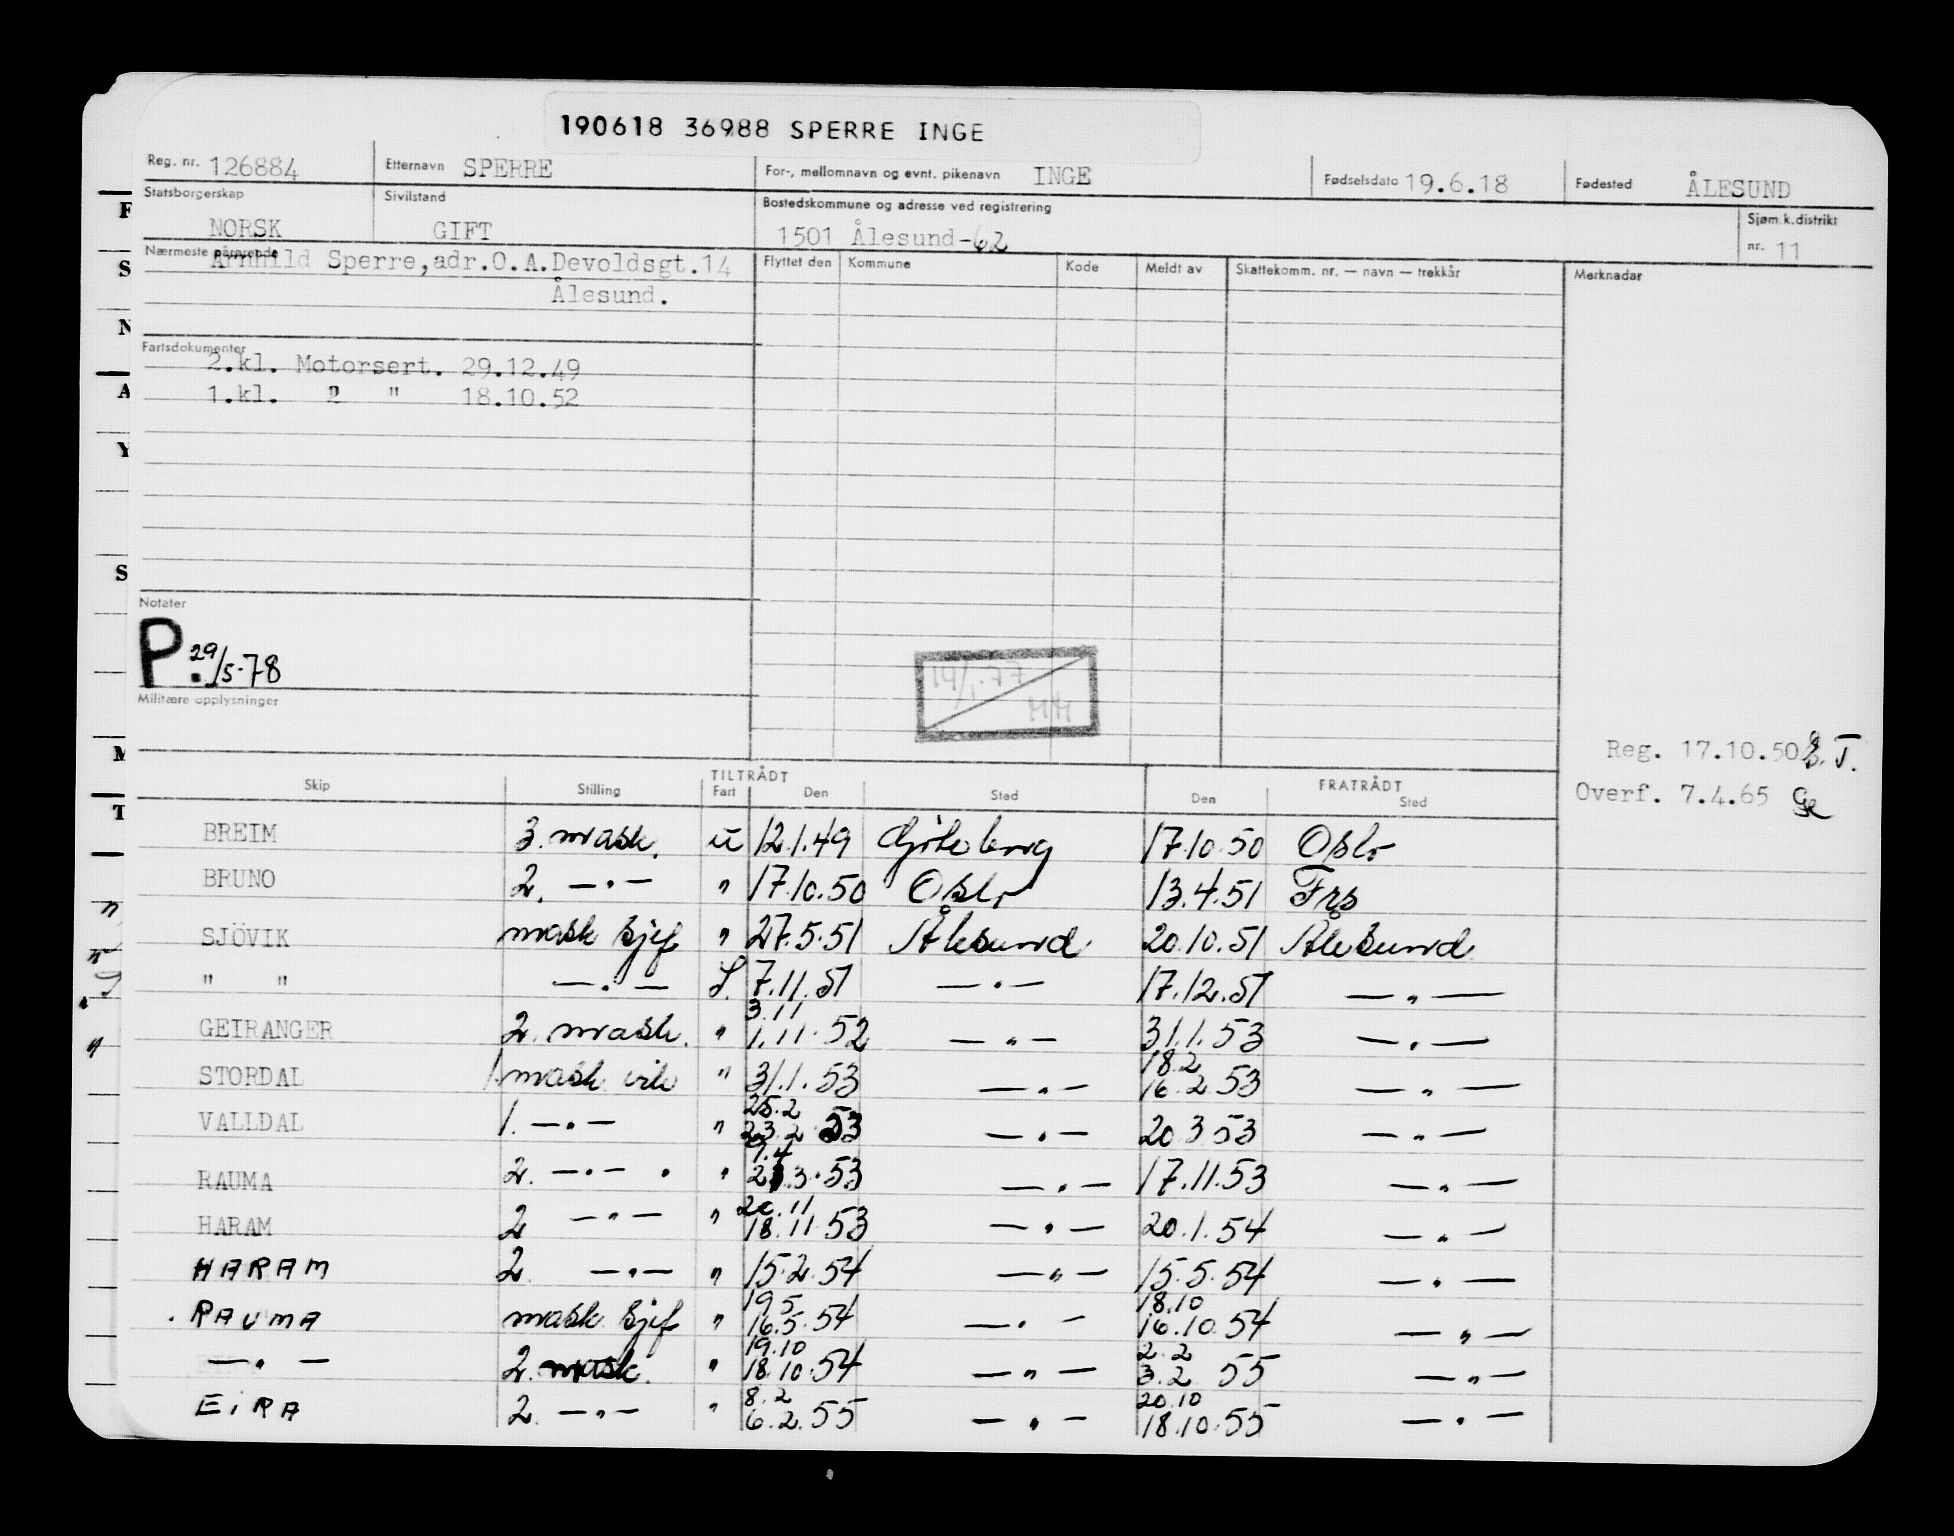 190618 36988 SPERRE INGE
Reg. nr. 126884 Etternavn SPERRE For-, mellomnavn og evnt. pikenavn INGE Fødselsdato 19.6.18 Fødested ÅLESUND
Statsborgerskap Sivilstand Bostedskommune og adresse ved registrering Sjøm.k.distrikt
NORSK GIFT 1501 Ålesund-62 nr. 11
Nærmeste pårørende Arnhild Sperre, adr.O.A.Devoldsgt.14 Flyttet den Kommune Kode Meldt av Skattekomm. nr. — navn — trekkår Merknader
Ålesund.
Fartsdokumenter
2.kl. Motorsert. 29.12.49
1.kl. " " 18.10.52
Notater
P. 29/5-78
19/1-77
HH
Militære opplysninger
Reg. 17.10.50
Overf. 7.4.65
TILTRÅDT FRATRÅDT
Skip Stilling Fart Den Sted Den Sted
BREIM 3. mask. u 12.1.49 Göteborg 17.10.50 Oslo
BRUNO 2. —"— " 17.10.50 Oslo 13.4.51 Frs
SJÖVIK mask sjef " 27.5.51 Ålesund 20.10.51 Ålesund
" " —"— 7.11.51 —"— 17.12.51 —"—
3.11
GEIRANGER 2. mask. " 1.11.52 —"— 31.1.53 —"—
18.2
STORDAL 1. mask vik " 31.1.53 —"— 16.2.53 —"—
25.2
VALLDAL 1. —"— " 23.2.53 —"— 20.3.53 —"—
RAUMA 2. —"— " —"— 17.11.53 —"—
20.11
HARAM 2 —"— " 18.11.53 —"— 20.1.54 —"—
HARAM 2. —"— " 15.2.54 —"— 15.5.54 —"—
19.5 18.10
RAUMA mask sjef " 16.5.54 —"— 16.10.54 —"—
19.10 2.2
—"— 2. mask. " 18.10.54 —"— 3.2.55 —"—
8.2 20.10
EiRA 2. —"— " 6.2.55 —"— 18.10.55 —"—
F
S
N
A
Y
S
M
T